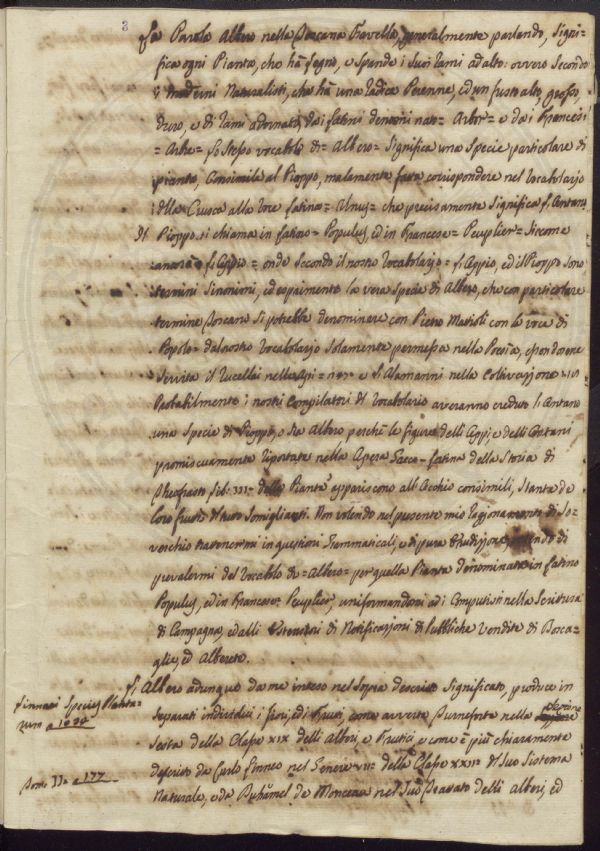 3
La Parola Albero nella Toscana Favella, generalmente parlando, signi-
fica ogni Pianta, che hà Legno, e spande i suoi rami ad alto: ovvero secondo
i moderni Naturalisti, che hà una radica Perenne, ed un fusto alto, grosso,
duro, e di rami adornato, dai Latini denominato = Arbor = e dai Francesi
= Arbre = Lo stesso vocabolo di = Albero = significa una specie particolare di
pianta, consimile al Pioppo, malamente fatta corrispondere nel Vocabolario
della Crusca alla voce Latina = Ulmus = che precisamente significa l'Ontano
Il Pioppo si chiama in Latino = Populus, ed in Francese = Peuplier = siccome
ancora = l'Oppio = onde secondo il nostro Vocabolario = l'Oppio, ed il Pioppo sono
termini sinonimi, ed esprimento la vera specie di Albero, che con particolare
termine Toscano si potrebbe denominare con Pietro Matioli con la voce di
Popolo = dal nostro Vocabolario solamente permessa nella Poesia, essendosene
servito il Rucellai nelle Api = e l'Alamanni nella Coltivazione
Probabilmente i nostri Compilatori del Vocabolario averanno creduto l'Ontano
una specie di Pioppo, o sia Albero, perchè le figure delli Oppi e delli Ontani
promiscuamente riportate nella Opera Greco-Latina della Storia di
Theofrasto Lib: III: delle Piante appariscono all'Occhio consimili, stante de
loro frutti del tutto somiglianti. Non volendo nel presente mio ragionamento di so-
verchio trattenermi in questioni Grammaticali, e di pura erudizione, intendo di
prevalermi del vocabolo di = Albero = per quella Pianta denominata in Latino
Populus, ed in Francese = Peuplier, uniformandomi ad i Computisti nella Scrittura
di Campagna, ed alli Estensori di Notificazioni di Pubbliche Vendite di Bosca-
glie, ed Alberete.
L'Albero adunque da me inteso nel sopra descritto significato, produce in
Linnaei Species Planta-
rum a 1034
separati individui i fiori, ed i frutti, come avverte Turnefort nella Sezione
Sesta della Classe XIX delli Alberi, e Frutici e come è più chiaramente
descritto da Carlo Linneo nel Genere VII della Classe XXII del suo Sistema
Tom: II a 177
Naturale, e da Duhamel de Monceau nel suo Trattato delli alberi, ed